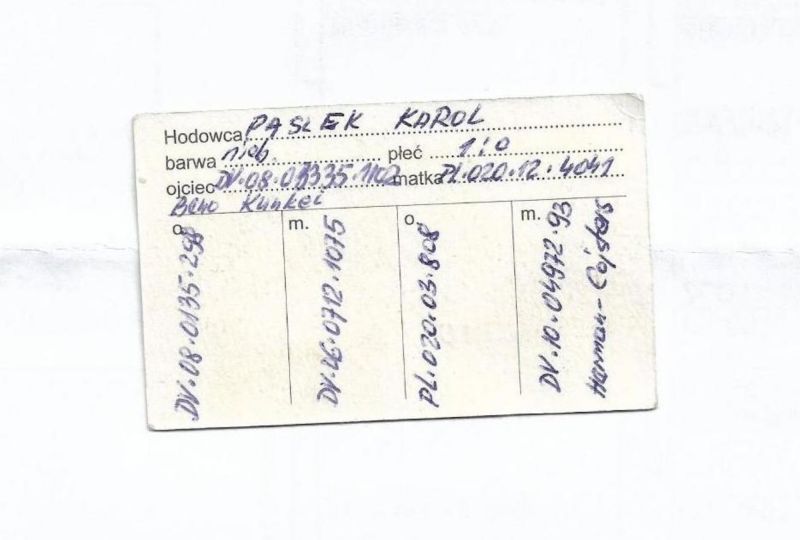 Hodowca PASLEK KAROL
barwa nieb. płeć 1:0
ojciec DV.08.01335.1102 matka PL.020.12.4041
Beno Kunkel
o. m. o. m.
DV.08.0135.298
DV.06.0712.1075
PL.020.03.808
DV.10.04972.93
Harman-Cojsters